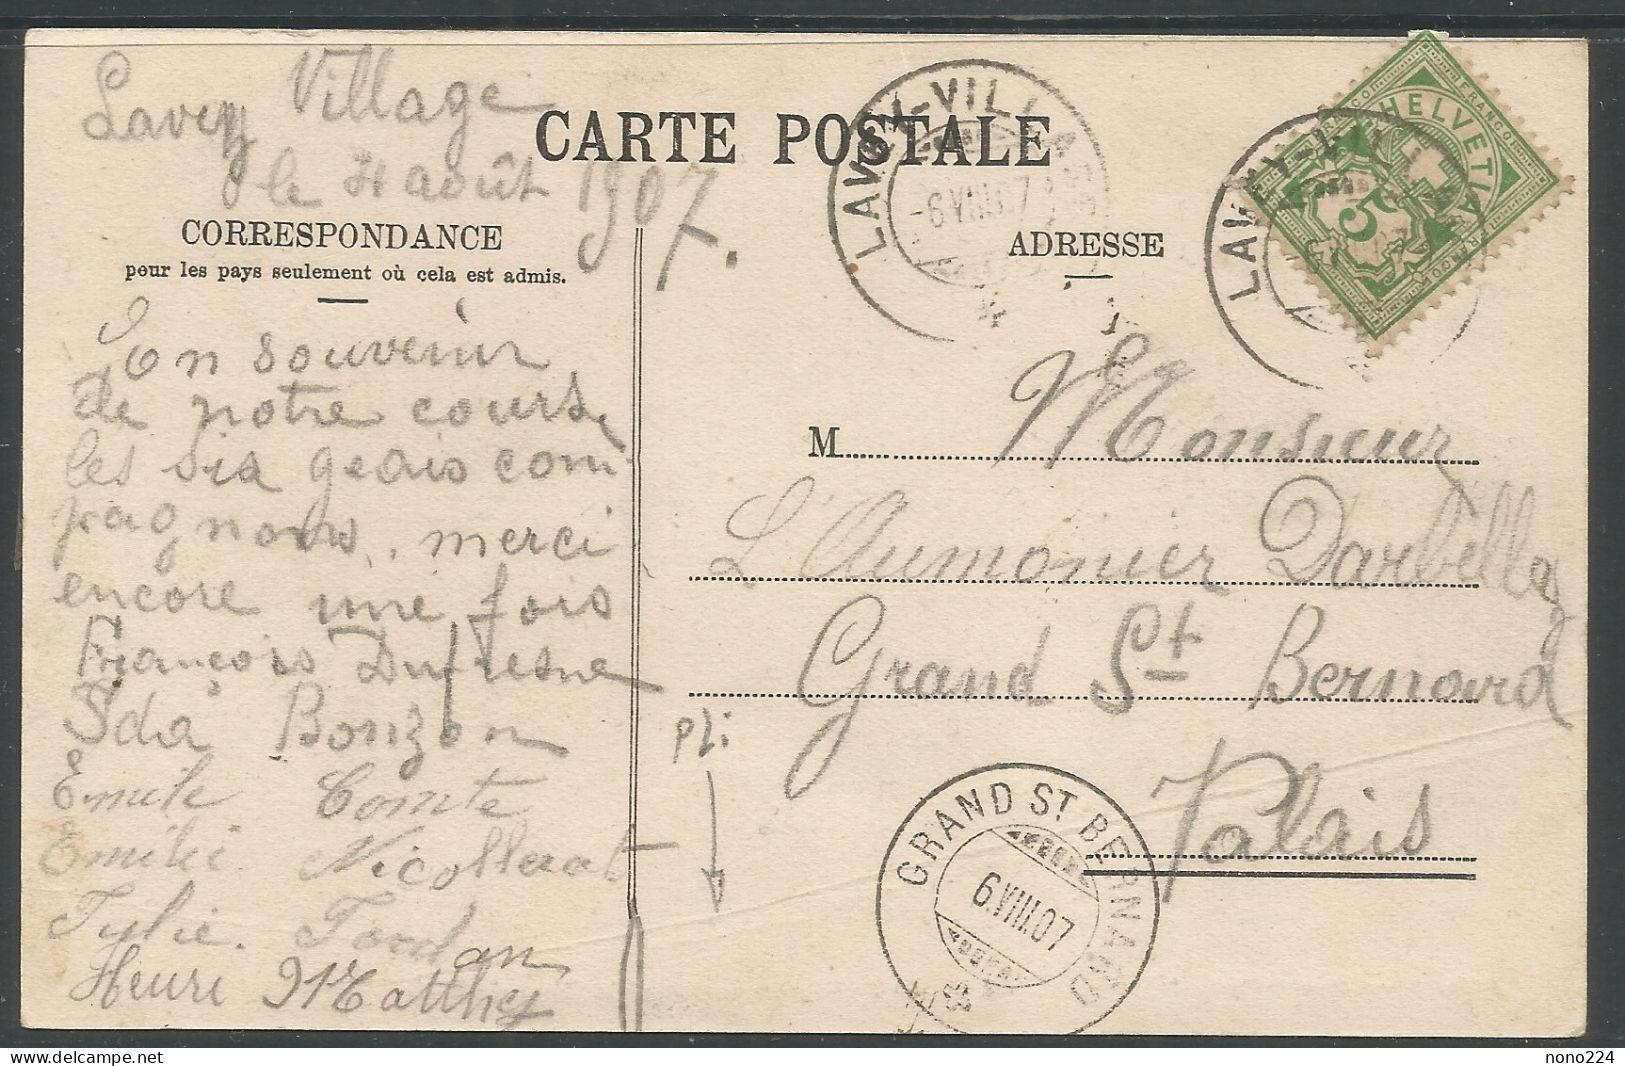 Lavey Village
le 4 août 1907.
CARTE POSTALE
CORRESPONDANCE
pour les pays seulement où cela est admis.
ADRESSE
En souvenir
de notre course
les six geais com
pagnons, merci
encore une fois
François Dufresne
Ida Bonzon
Emile Comte
Emilie Nicollerat
Julie Jordan
Henri Matthey
M. Monsieur
L'Aumonier Darbellay
Grand St Bernard
Valais
pli
LAVEY-VILLAGE
-6.VIII.07
LAVEY-VILLAGE
HELVETIA
FRANCO
5
GRAND ST. BERNARD
6.VIII.07
nono224